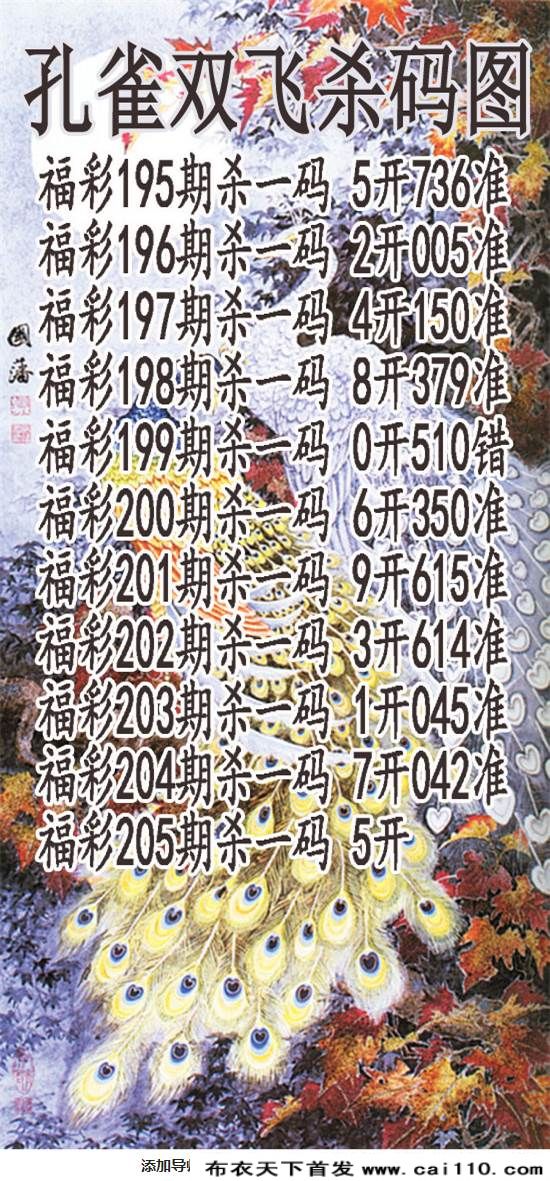 孔雀双飞杀码图
福彩195期杀一码 5开736准
福彩196期杀一码 2开005准
福彩197期杀一码 4开150准
福彩198期杀一码 8开379准
福彩199期杀一码 0开510错
福彩200期杀一码 6开350准
福彩201期杀一码 9开615准
福彩202期杀一码 3开614准
福彩203期杀一码 1开045准
福彩204期杀一码 7开042准
福彩205期杀一码 5开
國藩
添加导 布衣天下首发 www.cai110.com